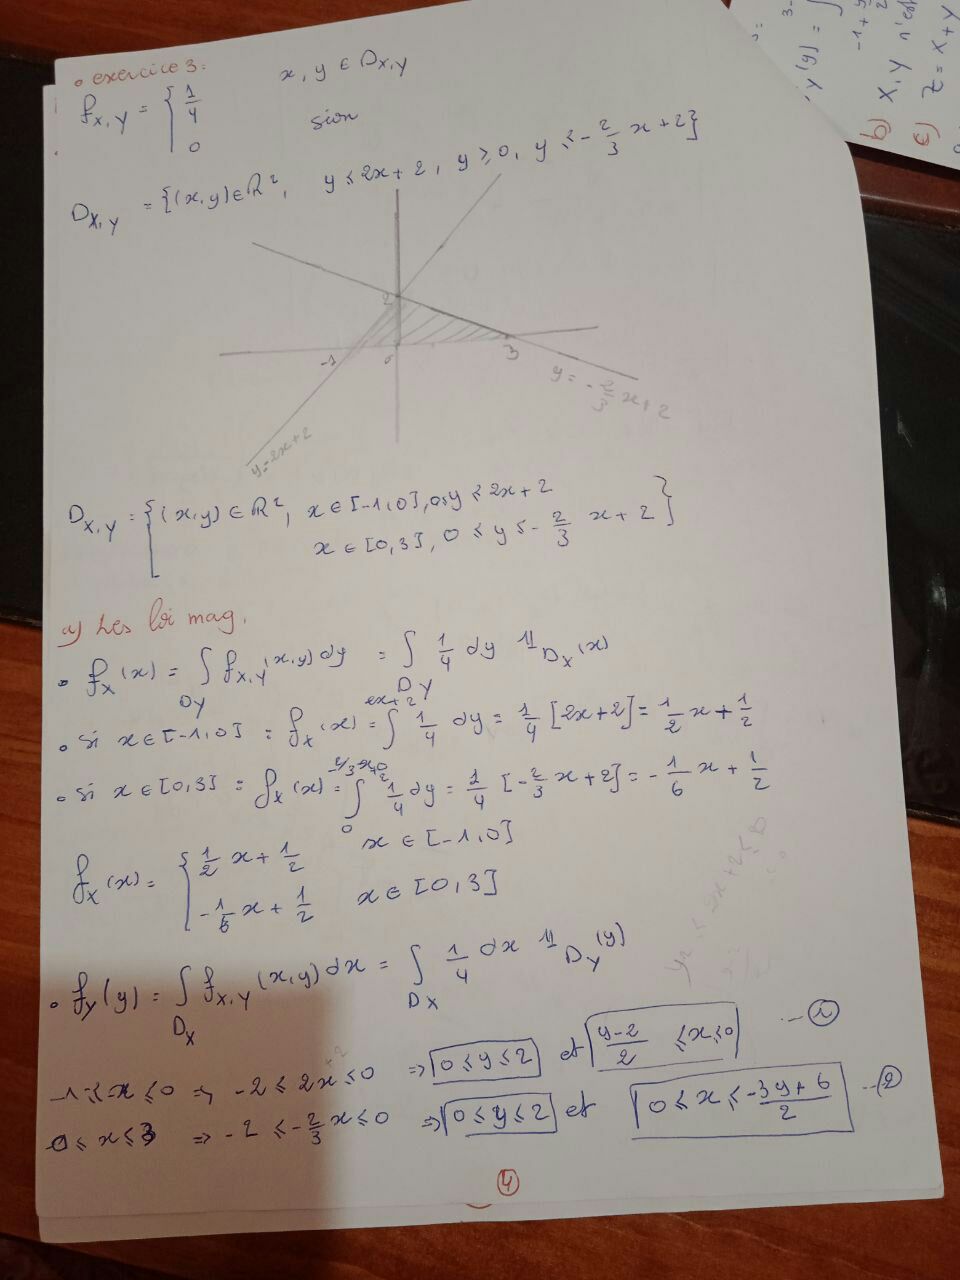 • exercice 3:
f_{X,Y} = { 1/4   x, y ∈ D_{X,Y}
0   sion
D_{X,Y} = {(x,y) ∈ R², y ≤ 2x+2, y ≥ 0, y ≤ -2/3 x + 2}
2
-1   0   3
y = -2/3 x + 2
y = 2x+2
D_{X,Y} = { (x,y) ∈ R², x ∈ [-1,0], 0 ≤ y ≤ 2x+2
x ∈ [0,3], 0 ≤ y ≤ -2/3 x + 2 }
a) Les loi mag.
• f_X(x) = ∫_{D_Y} f_{X,Y}(x,y) dy = ∫_{D_Y} 1/4 dy 𝟙_{D_X}(x)
• Si x ∈ [-1,0] : f_X(x) = ∫ 1/4 dy = 1/4 [2x+2] = 1/2 x + 1/2
• Si x ∈ [0,3] : f_X(x) = ∫_0 1/4 dy = 1/4 [-2/3 x + 2] = -1/6 x + 1/2
f_X(x) = { 1/2 x + 1/2   x ∈ [-1,0]
-1/6 x + 1/2   x ∈ [0,3]
• f_Y(y) = ∫_{D_X} f_{X,Y}(x,y) dx = ∫_{D_X} 1/4 dx 𝟙_{D_Y}(y)
-1 ≤ x ≤ 0 ⇒ -2 ≤ 2x ≤ 0 ⇒ 0 ≤ y ≤ 2 et (y-2)/2 ≤ x ≤ 0 -- ①
0 ≤ x ≤ 3 ⇒ -2 ≤ -2/3 x ≤ 0 ⇒ 0 ≤ y ≤ 2 et 0 ≤ x ≤ (-3y+6)/2 -- ②
4
b) X, Y n'est
c) Z = X + Y